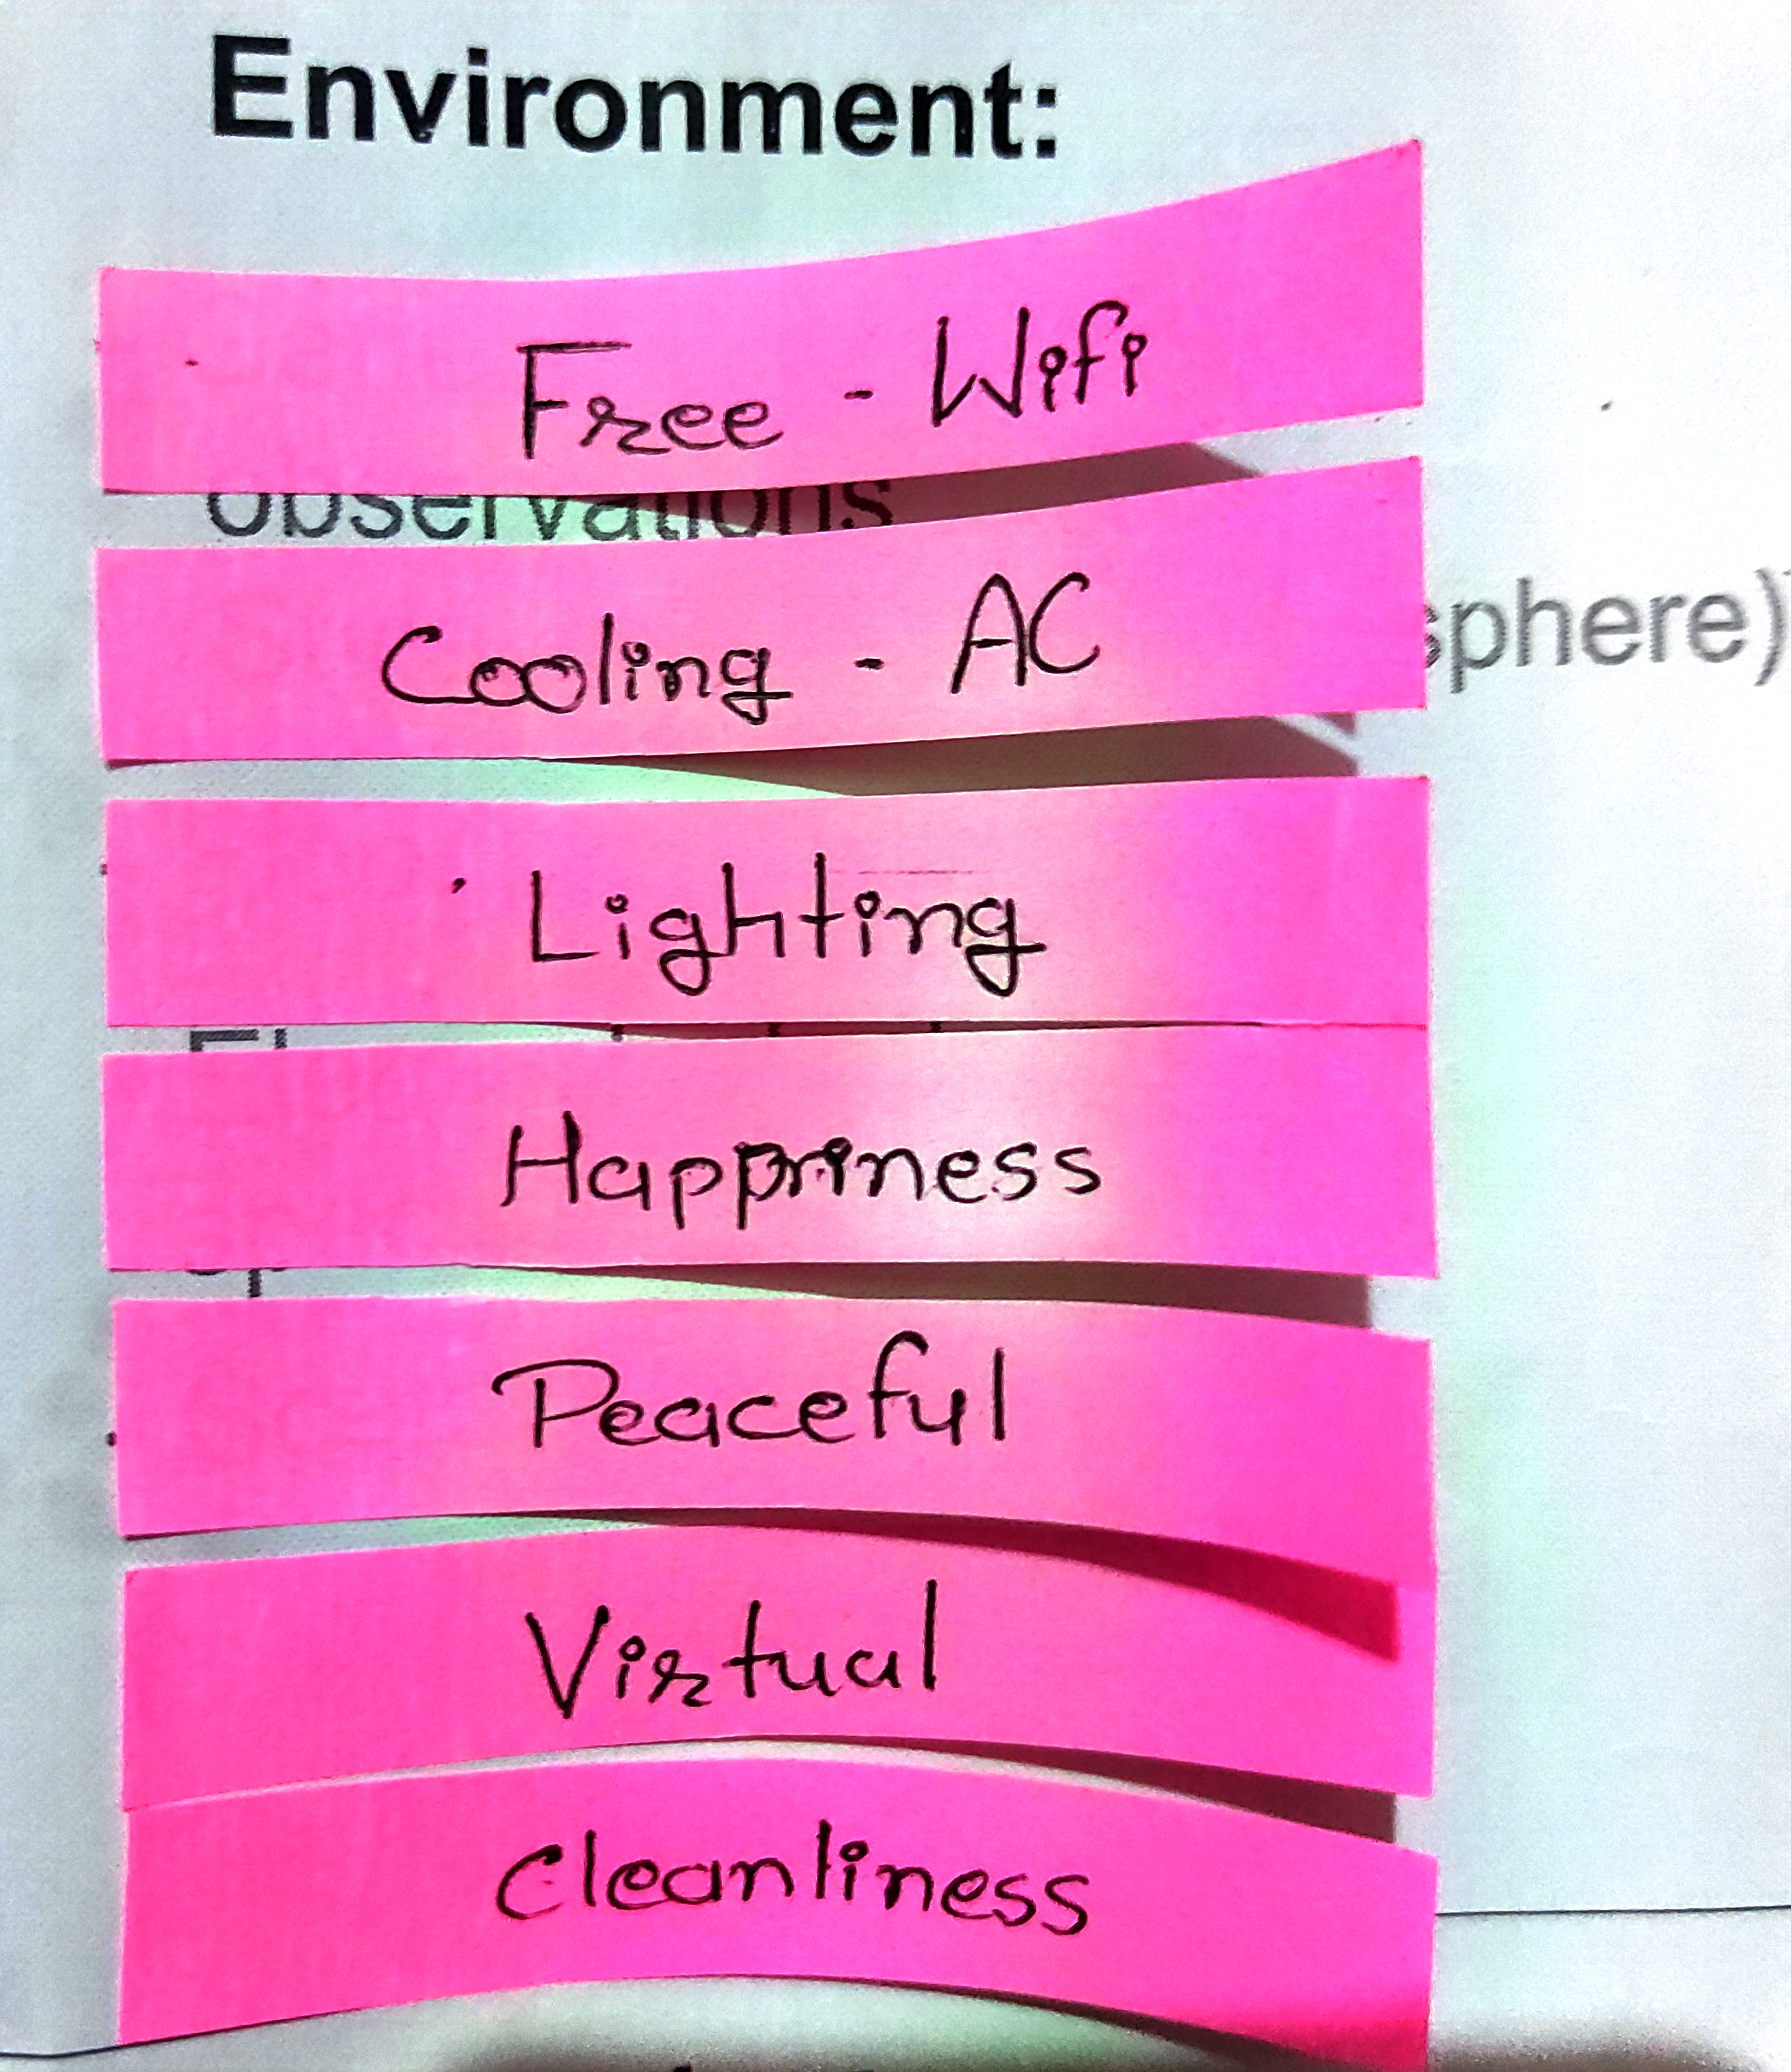 Environment:
Free - Wifi
observations
Cooling - AC
sphere)
Lighting
Happiness
Peaceful
Virtual
Cleanliness